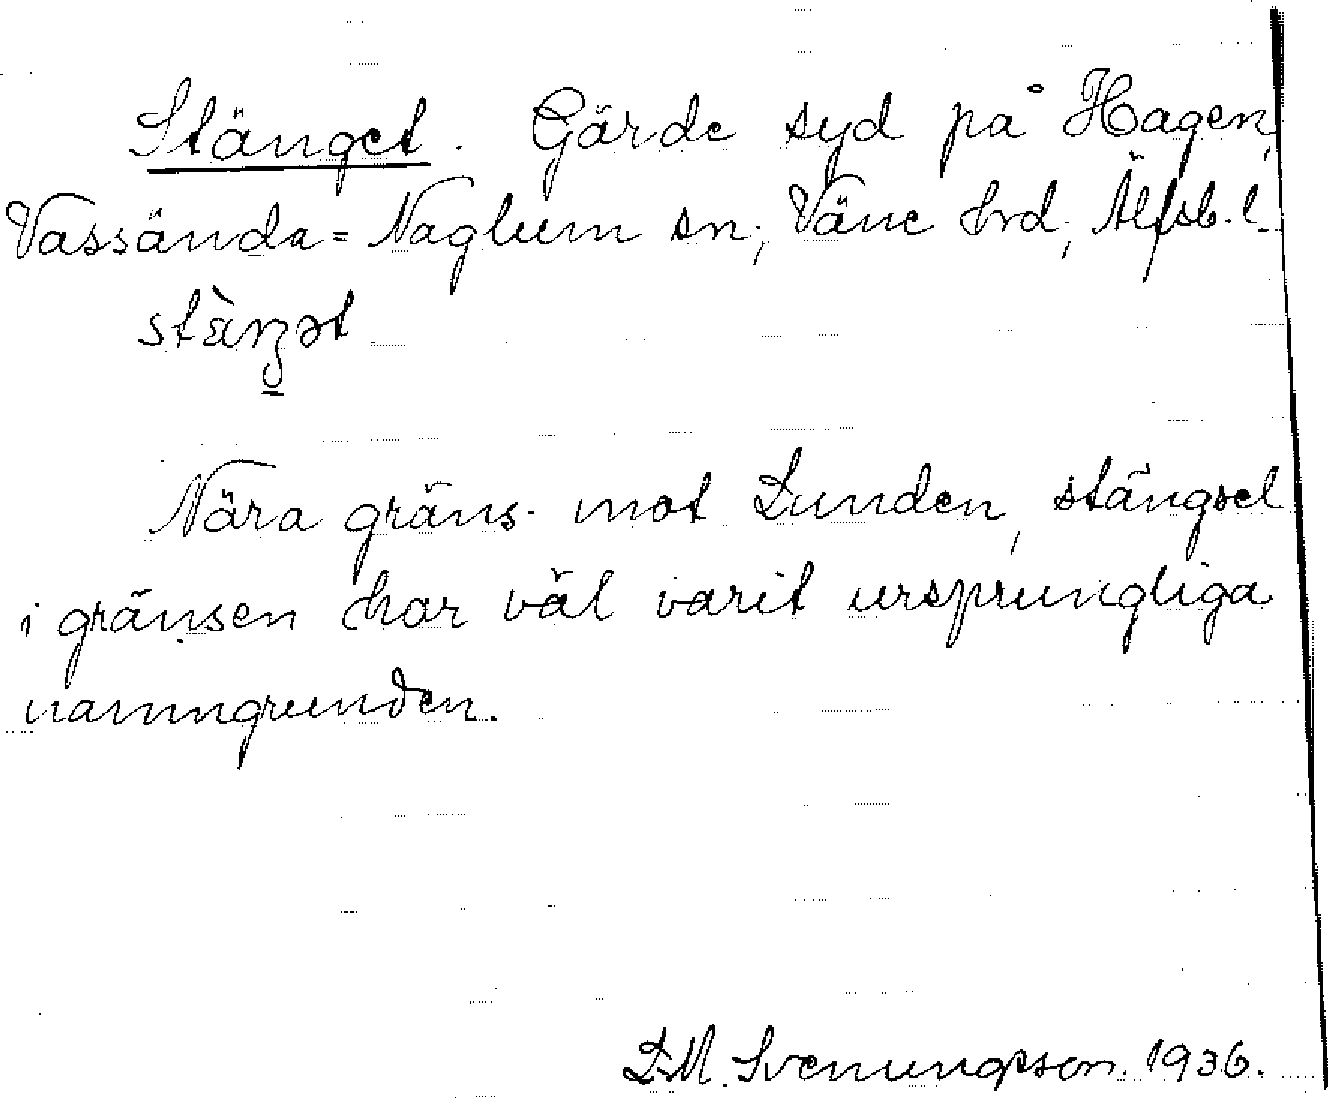 Stänget. Gärde syd på Hagen,
Vassända-Naglum sn, Väne hrd, Älfsb. l.
Nära gräns mot Lunden, stängsel
i gränsen har väl varit ursprungliga
namngrunden.
D.M. Svenungsson. 1936.